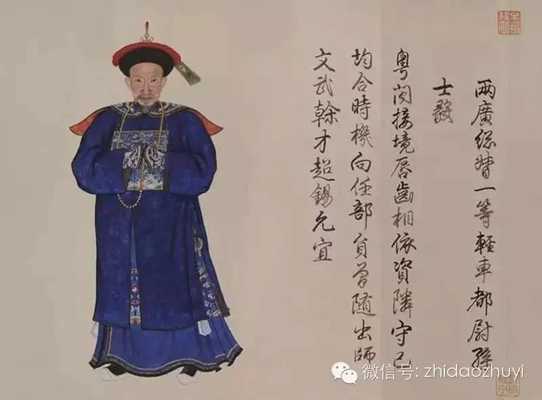 兩廣總督一等輕車都尉孫
士毅
粵閩接境唇齒相依資隣守己
均合時機向任部員曾隨出師
文武幹才超錫允宜
微信号: zhidaozhuyi